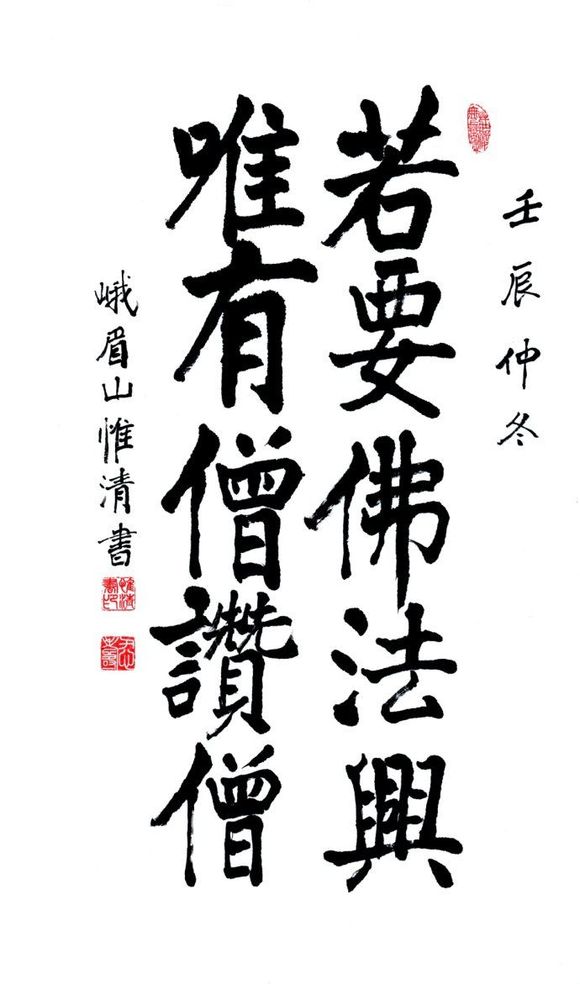 壬辰仲冬
若要佛法興
唯有僧讚僧
峨眉山惟清書